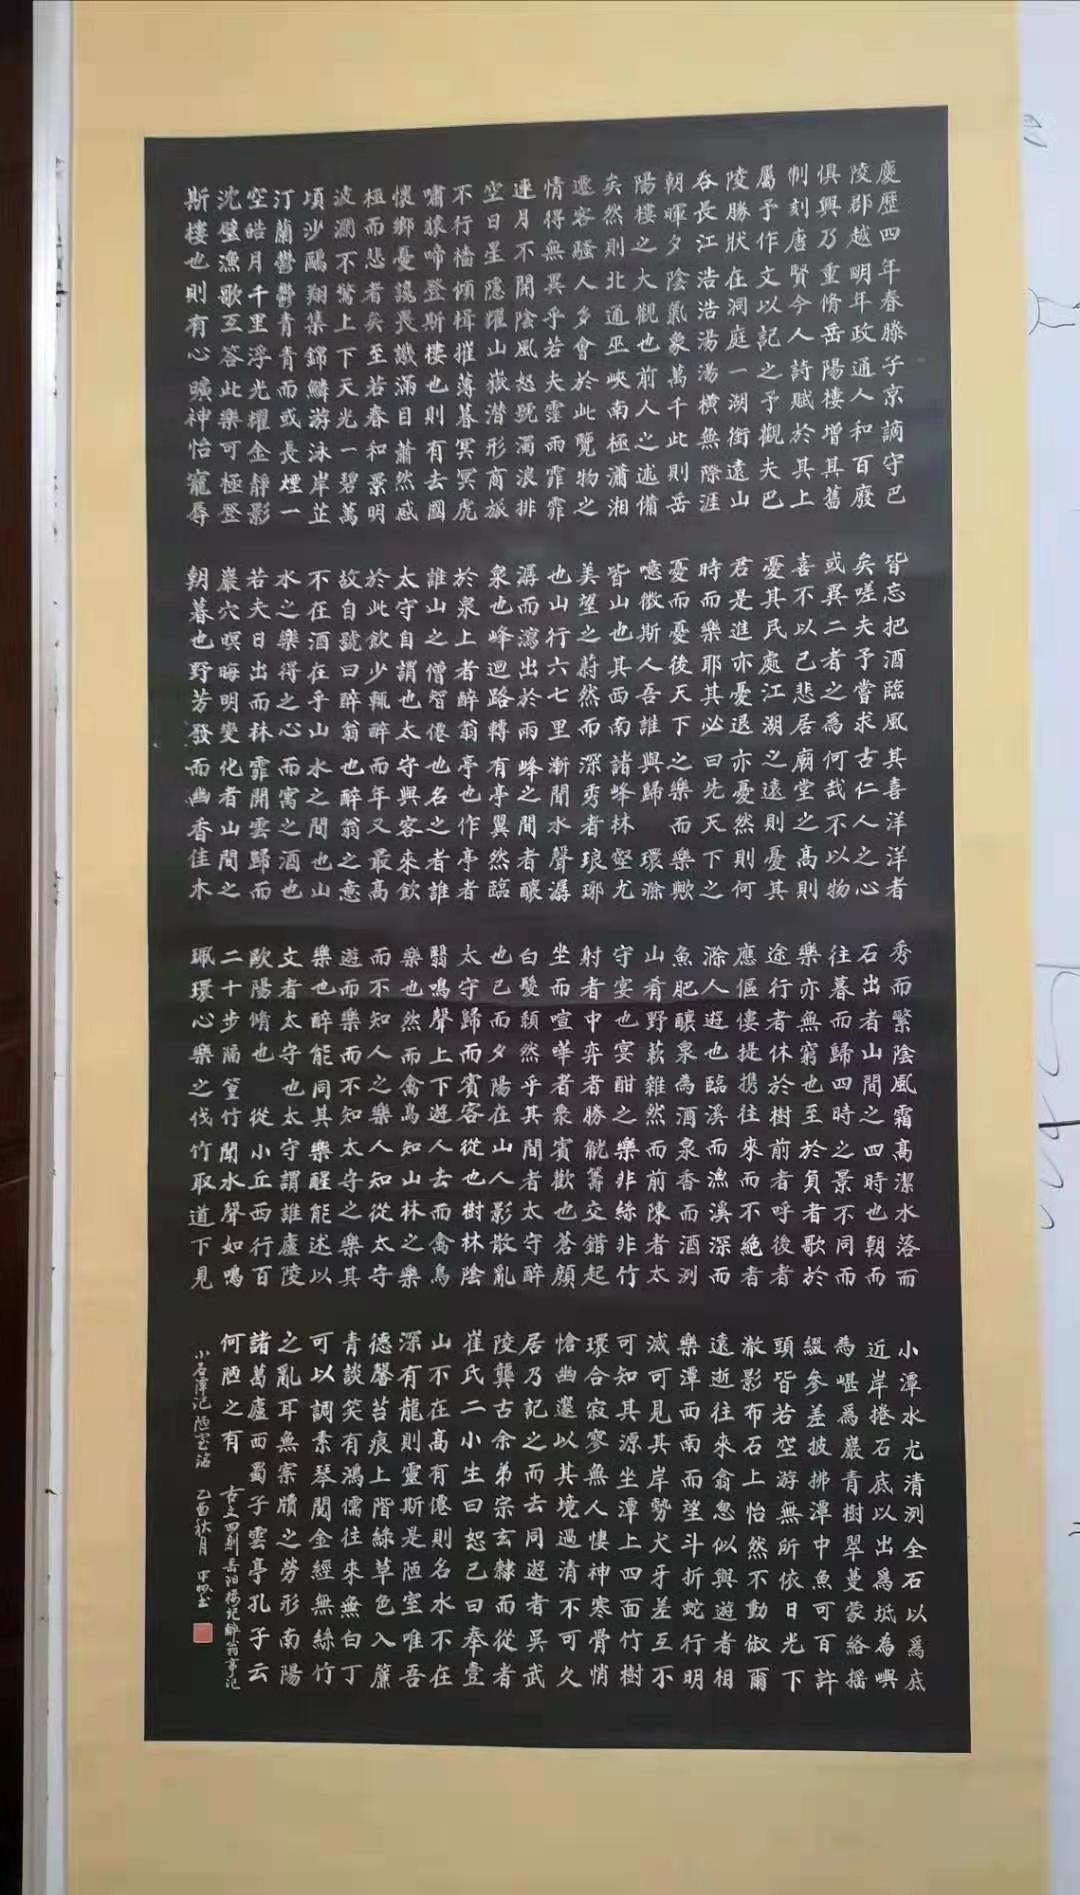 慶歷四年春滕子京謫守巴
陵郡越明年政通人和百廢
俱興乃重脩岳陽樓增其舊
制刻唐賢今人詩賦於其上
屬予作文以記之予觀夫巴
陵勝狀在洞庭一湖銜遠山
吞長江浩浩湯湯橫無際涯
朝暉夕陰氣象萬千此則岳
陽樓之大觀也前人之述備
矣然則北通巫峽南極瀟湘
遷客騷人多會於此覽物之
情得無異乎若夫霪雨霏霏
連月不開陰風怒號濁浪排
空日星隱耀山嶽潛形商旅
不行檣傾楫摧薄暮冥冥虎
嘯猿啼登斯樓也則有去國
懷鄉憂讒畏譏滿目蕭然感
極而悲者矣至若春和景明
波瀾不驚上下天光一碧萬
頃沙鷗翔集錦鱗游泳岸芷
汀蘭鬱鬱青青而或長煙一
空皓月千里浮光耀金靜影
沈璧漁歌互答此樂可極登
斯樓也則有心曠神怡寵辱
皆忘把酒臨風其喜洋洋者
矣嗟夫予嘗求古仁人之心
或異二者之為何哉不以物
喜不以己悲居廟堂之高則
憂其民處江湖之遠則憂其
君是進亦憂退亦憂然則何
時而樂耶其必曰先天下之
憂而憂後天下之樂而樂歟
噫微斯人吾誰與歸 環滁
皆山也其西南諸峰林壑尤
美望之蔚然而深秀者琅琊
也山行六七里漸聞水聲潺
潺而瀉出於兩峰之間者釀
泉也峰迴路轉有亭翼然臨
於泉上者醉翁亭也作亭者
誰山之僧智僊也名之者誰
太守自謂也太守與客來飲
於此飲少輒醉而年又最高
故自號曰醉翁也醉翁之意
不在酒在乎山水之間也山
水之樂得之心而寓之酒也
若夫日出而林霏開雲歸而
巖穴暝晦明變化者山間之
朝暮也野芳發而幽香佳木
秀而繁陰風霜高潔水落而
石出者山間之四時也朝而
往暮而歸四時之景不同而
樂亦無窮也至於負者歌於
途行者休於樹前者呼後者
應傴僂提携往來而不絕者
滁人遊也臨溪而漁溪深而
魚肥釀泉為酒泉香而酒洌
山肴野蔌雜然而前陳者太
守宴也宴酣之樂非絲非竹
射者中弈者勝觥籌交錯起
坐而喧嘩者衆賓歡也蒼顏
白髮頹然乎其間者太守醉
也已而夕陽在山人影散亂
太守歸而賓客從也樹林陰
翳鳴聲上下遊人去而禽鳥
樂也然而禽鳥知山林之樂
而不知人之樂人知從太守
遊而樂而不知太守之樂其
樂也醉能同其樂醒能述以
文者太守也太守謂誰廬陵
歐陽脩也 從小丘西行百
二十步隔篁竹聞水聲如鳴
珮環心樂之伐竹取道下見
小潭水尤清洌全石以爲底
近岸捲石底以出爲坻為嶼
為嵁爲巖青樹翠蔓蒙絡搖
綴參差披拂潭中魚可百許
頭皆若空游無所依日光下
澈影布石上怡然不動俶爾
遠逝往來翕忽似與遊者相
樂潭西南而望斗折蛇行明
滅可見其岸勢犬牙差互不
可知其源坐潭上四面竹樹
環合寂寥無人悽神寒骨悄
愴幽邃以其境過清不可久
居乃記之而去同遊者吳武
陵龔古余弟宗玄隸而從者
崔氏二小生曰恕己曰奉壹
山不在高有僊則名水不在
深有龍則靈斯是陋室唯吾
德馨苔痕上階綠草色入簾
青談笑有鴻儒往來無白丁
可以調素琴閱金經無絲竹
之亂耳無案牘之勞形南陽
諸葛廬西蜀子雲亭孔子云
何陋之有
古文四則岳阳楼记醉翁亭记
小石潭记陋室銘 乙酉秋月